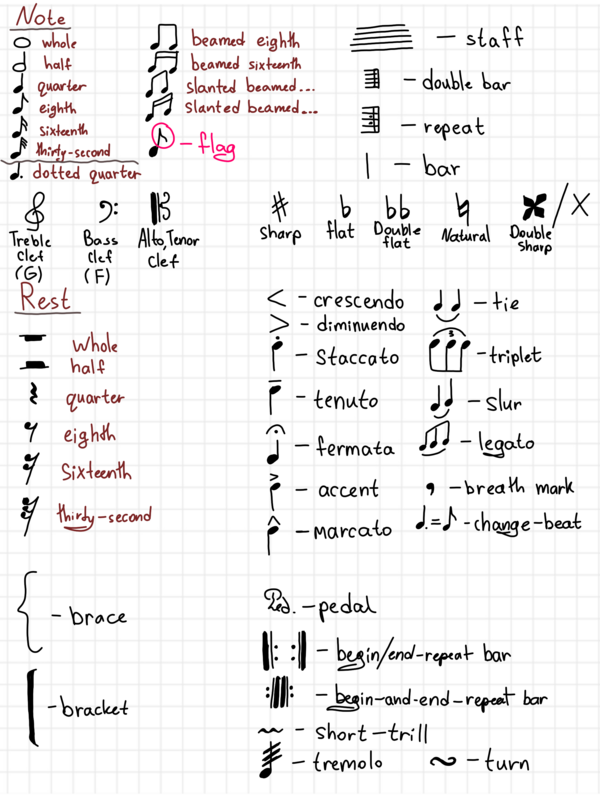 Note
whole
half
quarter
eighth
sixteenth
thirty-second
dotted quarter
beamed eighth
beamed sixteenth
slanted beamed...
slanted beamed...
- flag
- staff
- double bar
- repeat
- bar
Treble clef (G)
Bass clef (F)
Alto, Tenor clef
sharp
flat
Double flat
Natural
/ X
Double sharp
Rest
whole
half
quarter
eighth
Sixteenth
thirdy-second
- crescendo
- diminuendo
- Staccato
- tenuto
- fermata
- accent
- marcato
- tie
3
- triplet
- slur
- legato
- breath mark
- change-beat
- brace
- bracket
Ped. - pedal
- begin/end-repeat bar
- begin-and-end-repeat bar
- short-trill
- tremolo
- turn